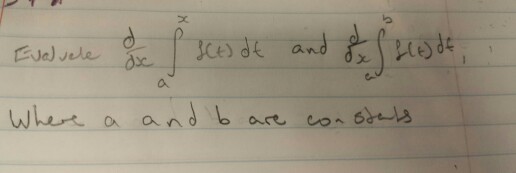 Evaluate d/dx ∫_a^x f(t) dt and d/dx ∫_a^b f(t) dt,
Where a and b are constants